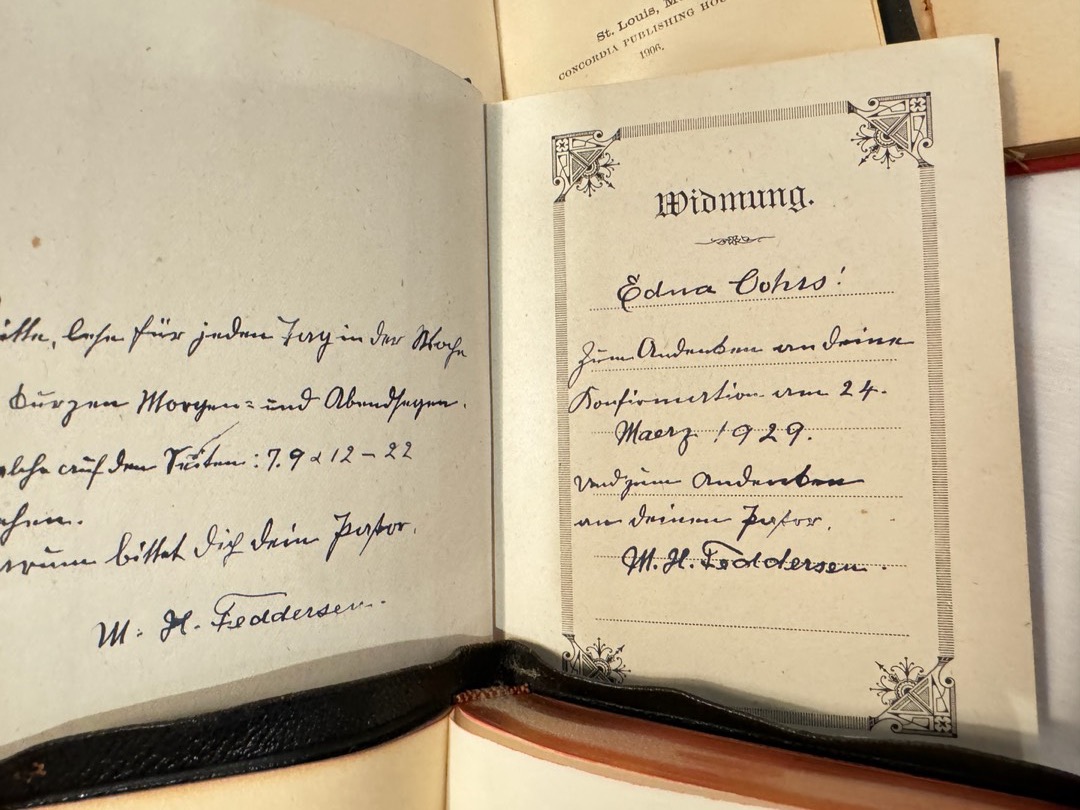 St. Louis, Mo
CONCORDIA PUBLISHING HOU
1906.
itte, lese für jeden Tag in der Woche
kurzen Morgen= und Abendsegen.
elche auf den Seiten: 7. 9 & 12 – 22
ehen.
arum bittet dich dein Pastor.
M. H. Feddersen.
Widmung.
Edna Cohrs!
Zum Andenken an deine
Konfirmation am 24.
Maerz 1929.
Und zum Andenken
an deinen Pastor,
M. H. Feddersen.